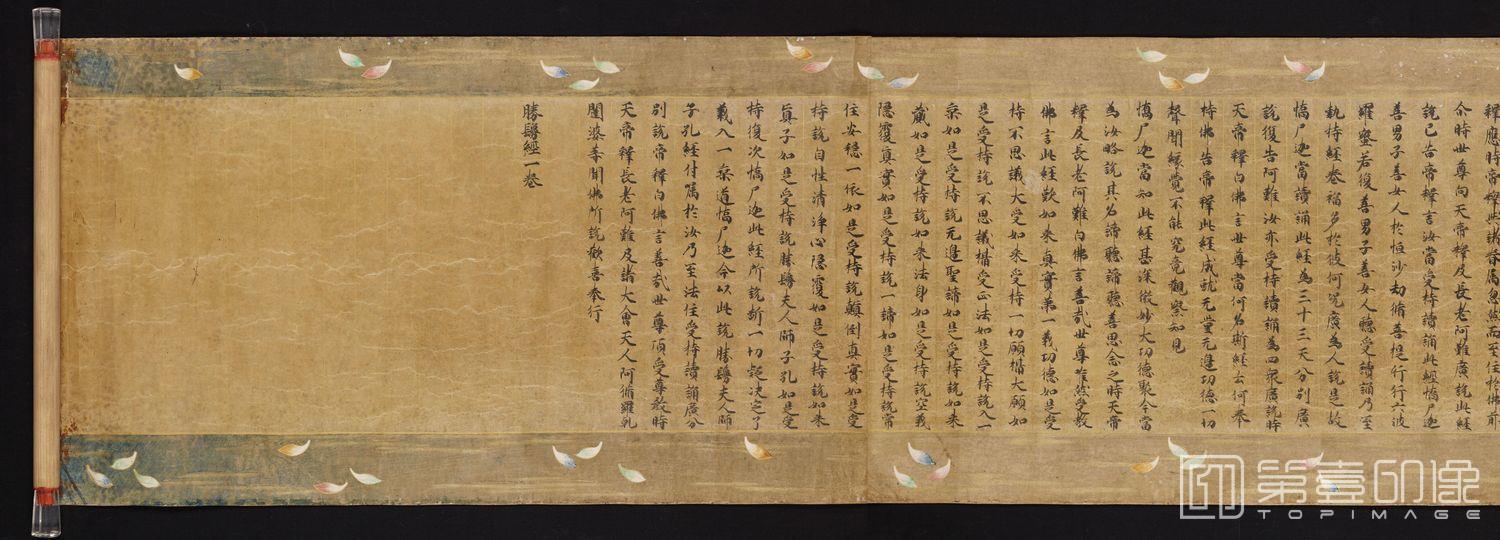 釋應時帝釋與諸眷屬忽然而至住於佛前
尒時世尊向天帝釋及長老阿難廣說此經
說已告帝釋言汝當受持讀誦此經憍尸迦
善男子善女人於恒沙劫脩菩提行行六波
羅蜜若復善男子善女人聽受讀誦乃至
執持經卷福多於彼何況廣為人說是故
憍尸迦當讀誦此經為三十三天分別廣
說復告阿難汝亦受持讀誦為四衆廣說時
天帝釋白佛言世尊當何名斯經云何奉
持佛告帝釋此經成就无量无邊功德一切
聲聞緣覺不能究竟觀察知見
憍尸迦當知此經甚深微妙大功德聚今當
為汝略說其名諦聽諦聽善思念之時天帝
釋及長老阿難白佛言善哉世尊唯然受教
佛言此經歎如来真實第一義功德如是受
持不思議大受如来受持一切願攝大願如
是受持說不思議攝受正法如是受持說入一
乘如是受持說无邊聖諦如是受持說如来
藏如是受持說如来法身如是受持說空義
隱覆真實如是受持說一諦如是受持說常
住安穩一依如是受持說顛倒真實如是受
持說自性清淨心隱覆如是受持說如来
真子如是受持說勝鬘夫人師子孔如是受
持復次憍尸迦此經所說斷一切疑决定了
義入一乘道憍尸迦今以此說勝鬘夫人師
子孔經付囑於汝乃至法住受持讀誦廣分
別說帝釋白佛言善哉世尊頂受尊教時
天帝釋長老阿難及諸大會天人阿脩羅乹
闥婆等聞佛所說歡喜奉行
勝鬘經一卷
第壹印像
TOPIMAGE